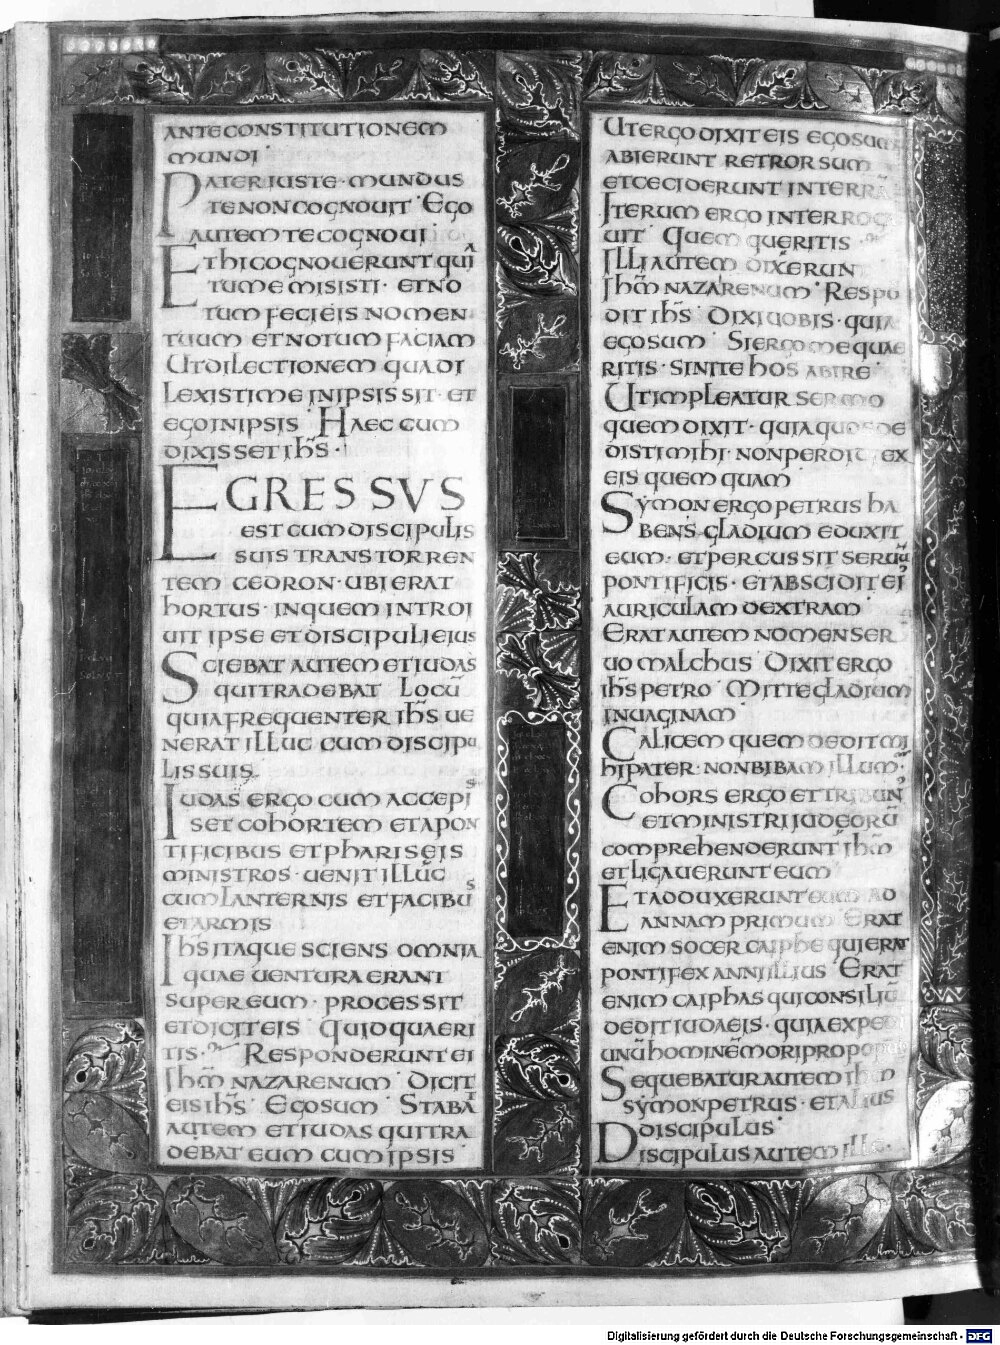 ANTE CONSTITUTIONEM
MUNDI
PATER IUSTE · MUNDUS
TE NON COGNOUIT · EGO
AUTEM TE COGNOUI ·
ET HI COGNOUERUNT QUI
TU ME MISISTI · ET NO
TUM FECI EIS NOMEN
TUUM ET NOTUM FACIAM
UT DILECTIONEM QUA DI
LEXISTI ME IN IPSIS SIT · ET
EGO IN IPSIS · HAEC CUM
DIXISSET IHS̄ ·
EGRESSVS
EST CUM DISCIPULIS
SUIS TRANS TORREN
TEM CEDRON · UBI ERAT
HORTUS · IN QUEM INTROI
UIT IPSE ET DISCIPULI EIUS
SCIEBAT AUTEM ET IUDAS
QUI TRADEBAT LOCŪ
QUIA FREQUENTER IHS̄ UE
NERAT ILLUC CUM DISCIPU
LIS SUIS
IUDAS ERGO CUM ACCEPI
SSET COHORTEM ET A PON
TIFICIBUS ET PHARISEIS
MINISTROS · UENIT ILLUC
CUM LANTERNIS ET FACIBUS
ET ARMIS
IHS̄ ITAQUE SCIENS OMNIA
QUAE UENTURA ERANT
SUPER EUM · PROCESSIT
ET DICIT EIS QUID QUAERI
TIS · RESPONDERUNT EI
IHM̄ NAZARENUM · DICIT
EIS IHS̄ · EGO SUM · STABA
AUTEM ET IUDAS QUI TRA
DEBAT EUM CUM IPSIS ·
UT ERGO DIXIT EIS EGO SUM
ABIERUNT RETRORSUM
ET CECIDERUNT IN TERRA
ITERUM ERGO INTERROG
UIT · QUEM QUERITIS
ILLI AUTEM DIXERUN
IHM̄ NAZARENUM · RESPO
DIT IHS̄ · DIXI UOBIS · QUIA
EGO SUM · SI ERGO ME QUAE
RITIS · SINITE HOS ABIRE ·
UT IMPLEATUR SERMO
QUEM DIXIT · QUIA QUOS DE
DISTI MIHI · NON PERDIDI EX
EIS QUEMQUAM
SYMON ERGO PETRUS HA
BENS GLADIUM EDUXIT
EUM · ET PERCUSSIT SERUŪ
PONTIFICIS · ET ABSCIDIT EI
AURICULAM DEXTRAM ·
ERAT AUTEM NOMEN SER
UO MALCHUS · DIXIT ERGO
IHS̄ PETRO · MITTE GLADIUM
IN UAGINAM ·
CALICEM QUEM DEDIT MI
HI PATER · NON BIBAM ILLUM ·
COHORS ERGO ET TRIBUN
ET MINISTRI IUDEORŪ
COMPREHENDERUNT IHM̄
ET LIGAUERUNT EUM
ET ADDUXERUNT EUM AD
ANNAM PRIMUM · ERAT
ENIM SOCER CAIPHE QUI ERAT
PONTIFEX ANNI ILLIUS · ERAT
ENIM CAIPHAS QUI CONSILIŪ
DEDIT IUDAEIS · QUIA EXPEDI
UNŪ HOMINĒ MORI PRO POPULO
SEQUEBATUR AUTEM IHM̄
SYMON PETRUS · ET ALIUS
DISCIPULUS ·
DISCIPULUS AUTEM ILLE
Digitalisierung gefördert durch die Deutsche Forschungsgemeinschaft - DFG